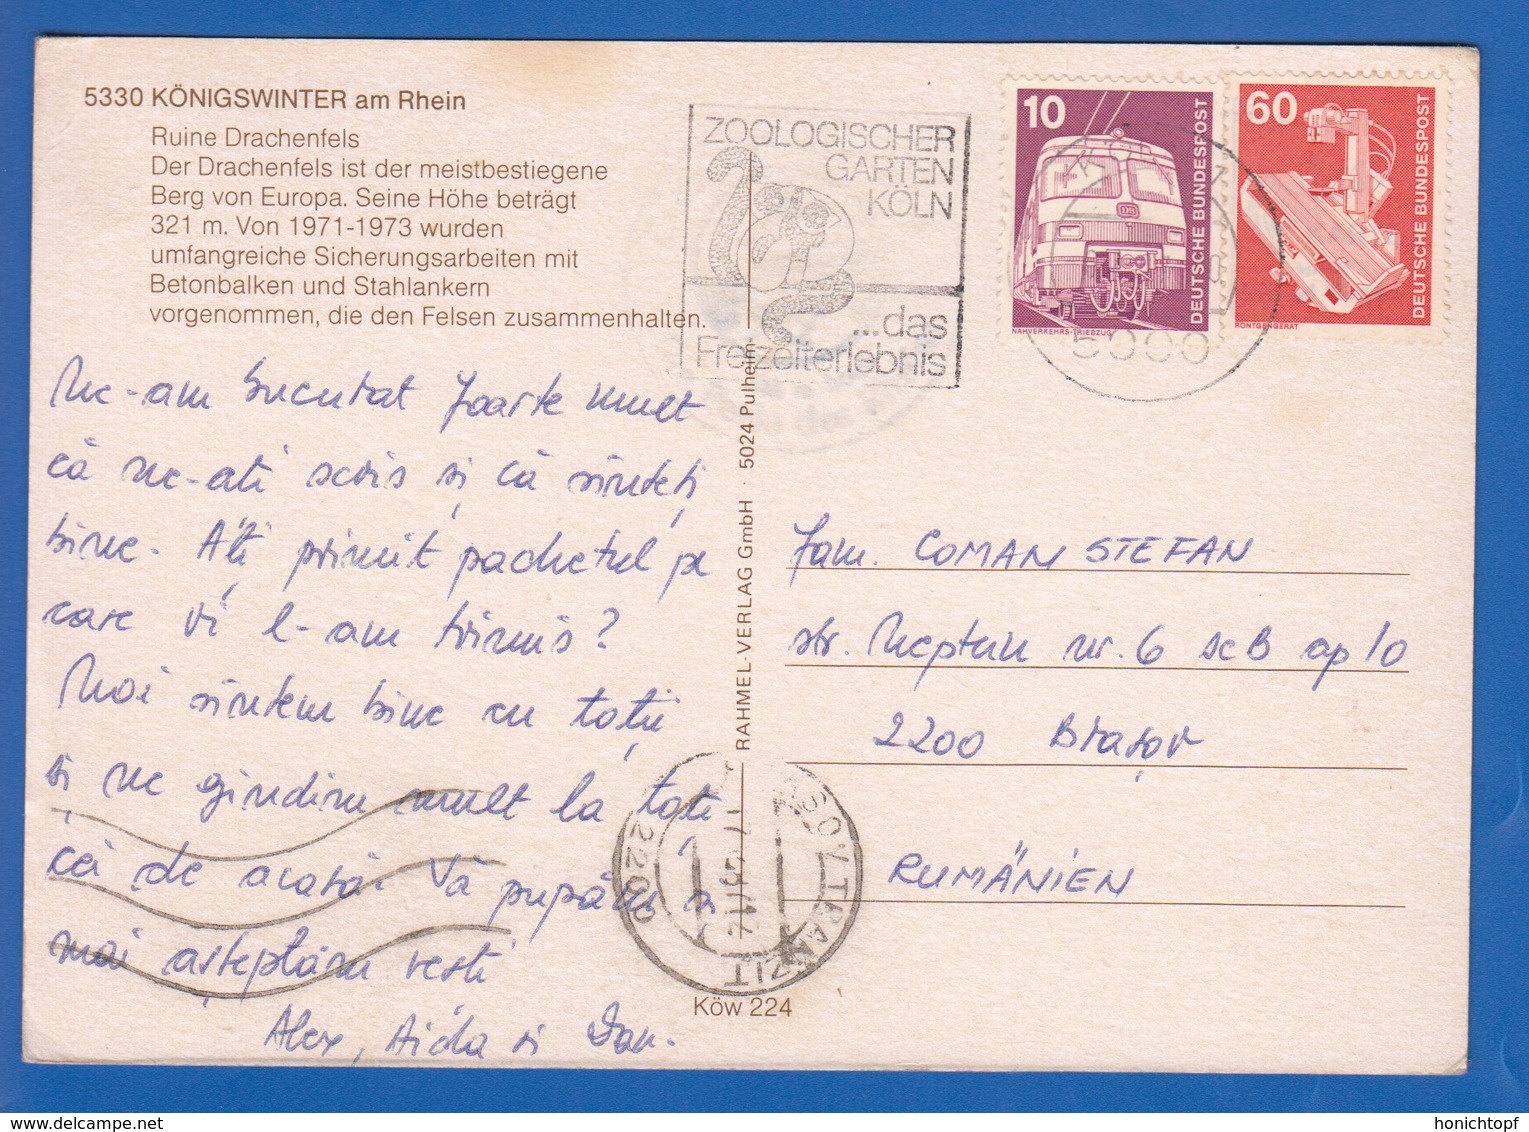 5330 KÖNIGSWINTER am Rhein
Ruine Drachenfels
Der Drachenfels ist der meistbestiegene
Berg von Europa. Seine Höhe beträgt
321 m. Von 1971-1973 wurden
umfangreiche Sicherungsarbeiten mit
Betonbalken und Stahlankern
vorgenommen, die den Felsen zusammenhalten.
ZOOLOGISCHER
GARTEN
KÖLN
...das
Freizeiterlebnis
10
DEUTSCHE BUNDESPOST
NAHVERKEHRS-TRIEBZUG
DB
60
DEUTSCHE BUNDESPOST
RÖNTGENGERÄT
5000
Ne-am bucurat foarte mult
că ne-ati scris și că sînteți
bine. Ați primit pachetul pe
care vi l-am trimis?
Noi sîntem bine cu toții
și ne gîndim mult la toti
cei de acasă. Vă pupăm și
mai așteptăm vesti
Alex, Aida si Dan.
RAHMEL-VERLAG GmbH · 5024 Pulheim
Köw 224
fam. COMAN STEFAN
str. Neptun nr. 6 sc B ap 10
2200 Brașov
RUMÄNIEN
2200
TRANZIT
honichtopf